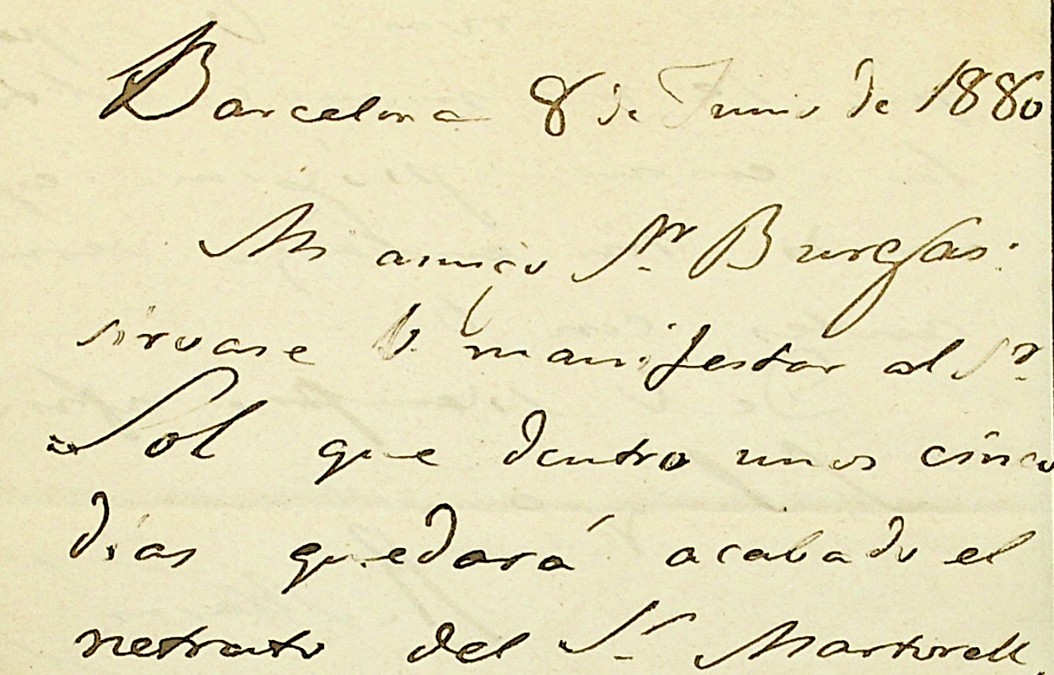 Barcelona 8 de Junio de 1880
Mi amigo Sr Burgas:
sirvase V. manifestar al Sr
Sol que dentro unos cinco
días quedará acabado el
retrato del Sr Martorell.